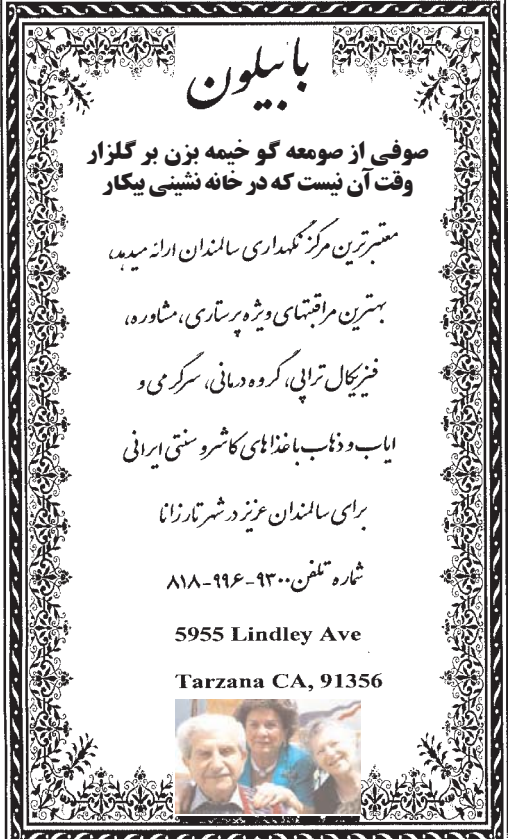 بابیلون
صوفی از صومعه گو خیمه بزن بر گلزار
وقت آن نیست که در خانه نشینی بیکار
معتبرترین مرکز نگهداری سالمندان ارائه میدهد،
بهترین مراقبتهای ویژه پرستاری، مشاوره،
فیزیکال تراپی، گروه درمانی، سرگرمی و
ایاب و ذهاب با غذاهای کاشر و سنتی ایرانی
برای سالمندان عزیز در شهر تارزانا
شماره تلفن ۹۳۰۰-۹۹۶-۸۱۸
5955 Lindley Ave
Tarzana CA, 91356